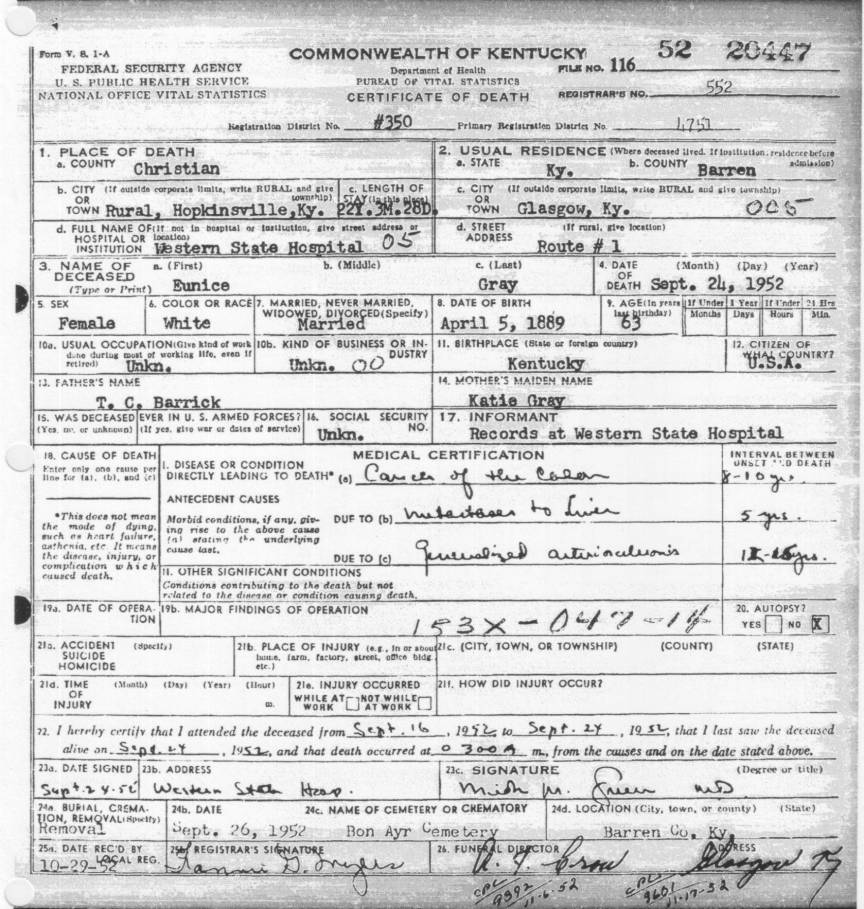 Form V. S. 1-A
FEDERAL SECURITY AGENCY
U. S. PUBLIC HEALTH SERVICE
NATIONAL OFFICE VITAL STATISTICS
COMMONWEALTH OF KENTUCKY
Department of Health
BUREAU OF VITAL STATISTICS
CERTIFICATE OF DEATH
FILE NO. 116 52 20447
REGISTRAR'S NO. 552
Registration District No. #350 Primary Registration District No. 4751
1. PLACE OF DEATH
a. COUNTY Christian
2. USUAL RESIDENCE (Where deceased lived. If institution, residence before admission)
a. STATE Ky. b. COUNTY Barren
b. CITY (If outside corporate limits, write RURAL and give township)
OR TOWN Rural, Hopkinsville, Ky.
c. LENGTH OF STAY (in this place) 22Y.3M.28D.
c. CITY (If outside corporate limits, write RURAL and give township)
OR TOWN Glasgow, Ky. 005
d. FULL NAME OF (If not in hospital or institution, give street address or location)
HOSPITAL OR INSTITUTION Western State Hospital 05
d. STREET ADDRESS (If rural, give location)
Route # 1
3. NAME OF DECEASED (Type or Print)
a. (First) b. (Middle) c. (Last)
Eunice Gray
4. DATE OF DEATH (Month) (Day) (Year)
Sept. 24, 1952
5. SEX
Female
6. COLOR OR RACE
White
7. MARRIED, NEVER MARRIED, WIDOWED, DIVORCED (Specify)
Married
8. DATE OF BIRTH
April 5, 1889
9. AGE (In years last birthday)
63
If Under 1 Year Months Days
If Under 24 Hrs Hours Min.
10a. USUAL OCCUPATION (Give kind of work done during most of working life, even if retired)
Unkn.
10b. KIND OF BUSINESS OR INDUSTRY
Unkn. 00
11. BIRTHPLACE (State or foreign country)
Kentucky
12. CITIZEN OF WHAT COUNTRY?
U.S.A.
13. FATHER'S NAME
T. C. Barrick
14. MOTHER'S MAIDEN NAME
Katie Gray
15. WAS DECEASED EVER IN U. S. ARMED FORCES?
(Yes, no, or unknown) (If yes, give war or dates of service)
16. SOCIAL SECURITY NO.
Unkn.
17. INFORMANT
Records at Western State Hospital
18. CAUSE OF DEATH
Enter only one cause per line for (a), (b), and (c)
MEDICAL CERTIFICATION
INTERVAL BETWEEN ONSET AND DEATH
I. DISEASE OR CONDITION
DIRECTLY LEADING TO DEATH* (a) Cancer of the Colon 8-10 yrs
*This does not mean the mode of dying, such as heart failure, asthenia, etc. It means the disease, injury, or complication which caused death.
ANTECEDENT CAUSES
Morbid conditions, if any, giving rise to the above cause (a) stating the underlying cause last.
DUE TO (b) metastases to Liver 5 yrs.
DUE TO (c) Generalized arteriosclerosis
II. OTHER SIGNIFICANT CONDITIONS
Conditions contributing to the death but not related to the disease or condition causing death.
19a. DATE OF OPERATION
19b. MAJOR FINDINGS OF OPERATION
153X
20. AUTOPSY?
YES NO X
21a. ACCIDENT SUICIDE HOMICIDE (Specify)
21b. PLACE OF INJURY (e.g., in or about home, farm, factory, street, office bldg. etc.)
21c. (CITY, TOWN, OR TOWNSHIP) (COUNTY) (STATE)
21d. TIME OF INJURY (Month) (Day) (Year) (Hour) m.
21e. INJURY OCCURRED
WHILE AT WORK NOT WHILE AT WORK
21f. HOW DID INJURY OCCUR?
22. I hereby certify that I attended the deceased from Sept. 16, 1952 to Sept. 24, 1952, that I last saw the deceased
alive on Sept. 24, 1952, and that death occurred at 0300A m., from the causes and on the date stated above.
23a. DATE SIGNED
Sept. 24-52
23b. ADDRESS
Western State Hosp.
23c. SIGNATURE (Degree or title)
M. MD
24a. BURIAL, CREMATION, REMOVAL (Specify)
Removal
24b. DATE
Sept. 26, 1952
24c. NAME OF CEMETERY OR CREMATORY
Bon Ayr Cemetery
24d. LOCATION (City, town, or county) (State)
Barren Co. Ky.
25a. DATE REC'D BY LOCAL REG.
10-29-52
25b. REGISTRAR'S SIGNATURE
Fannie D.
26. FUNERAL DIRECTOR ADDRESS
A. F. Crow Glasgow Ky
9392 11-6-52
9601 11-17-52